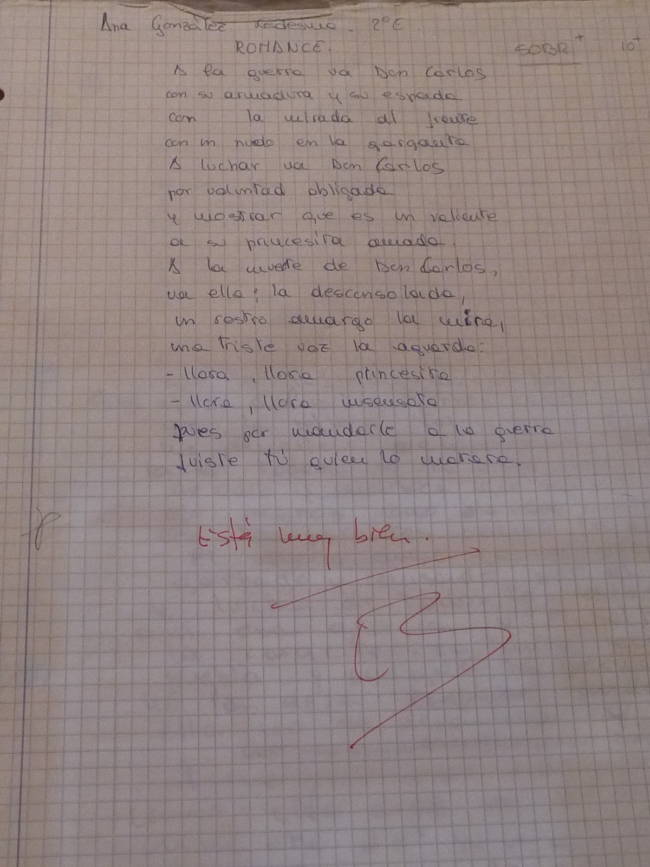 Ana González Ledesma. 2º E
ROMANCE.
SOBR⁺ 10⁺
A la guerra va Don Carlos
con su armadura y su espada
con la mirada al frente
con un nudo en la garganta
A luchar va Don Carlos
por voluntad obligada
y mostrar que es un valiente
a su princesita amada.
A la muerte de Don Carlos,
va ella; la desconsolada,
un rostro amargo la mira,
una triste voz la aguarda:
- llora, llora princesita
- llora, llora insensata
pues por mandarle a la guerra
fuiste tú quien lo matara.
Está muy bien.